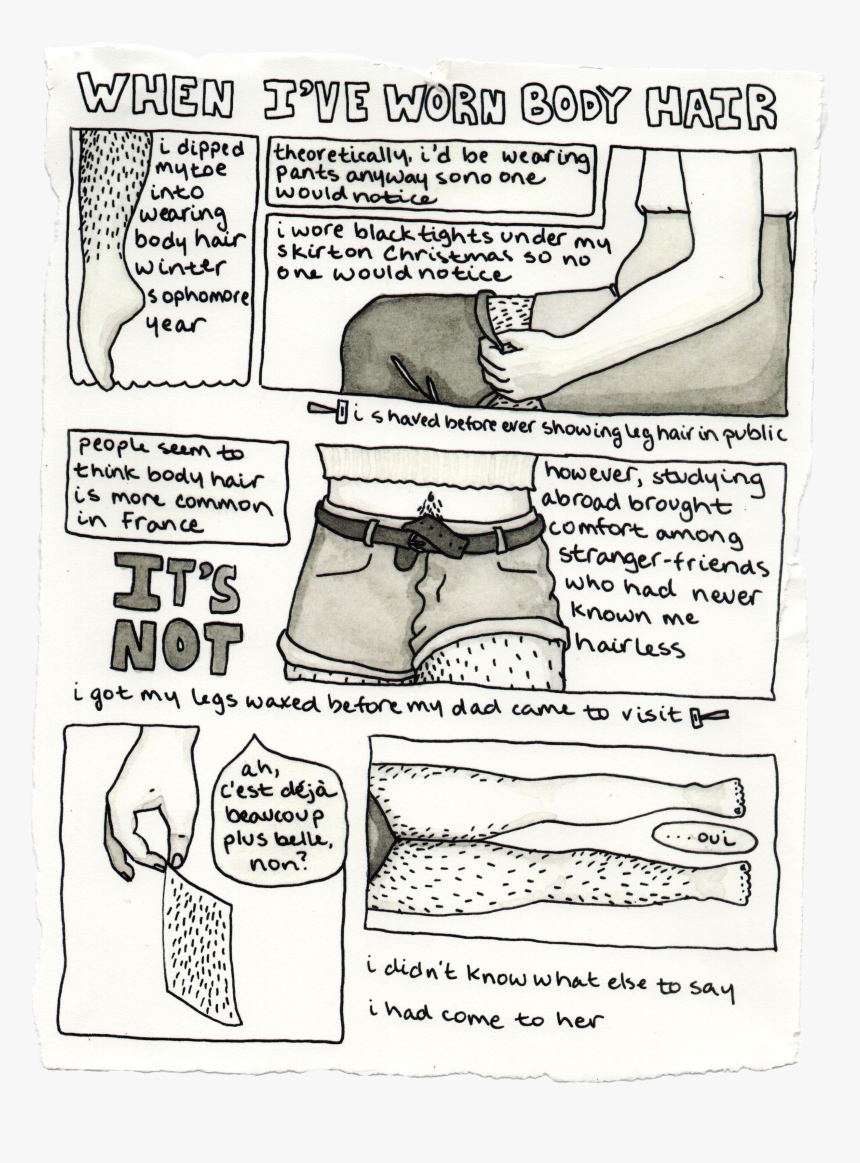 WHEN I'VE WORN BODY HAIR
i dipped
my toe
into
wearing
body hair
winter
sophomore
year
theoretically, i'd be wearing
pants anyway so no one
would notice
i wore black tights under my
skirt on Christmas so no
one would notice
i shaved before ever showing leg hair in public
people seem to
think body hair
is more common
in France
IT'S
NOT
however, studying
abroad brought
comfort among
stranger-friends
who had never
known me
hairless
i got my legs waxed before my dad came to visit
ah,
c'est déjà
beaucoup
plus belle,
non?
...oui
i didn't know what else to say
i had come to her